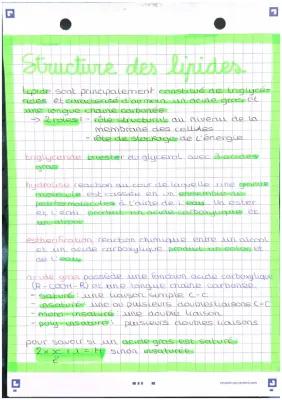 Structure des lipides
lipide sont principalement constitué de triglycé-
rides et caractérisé d'au moins un acide gras et
une longue chaine carbonée
→ 2 rôles : - rôle structural au niveau de la
membrane des cellules
- rôle de stockage de l'énergie
triglyceride triester du glycerol avec 3 acides
gras
hydrolyse reaction au cour de laquelle une grosse
molecule est en un ensemble de
petites molecules à l'aide de l'eau. Un ester
et l'eau produit un acide carboxylique et
un alcool
esthérification reaction chimique entre un alcool
et un acide carboxylique produit un ester et
de l'eau
acide gras possède une fonction acide carboxylique
(R-COOH-R) et une longue chaine carbonée.
- saturé : une liaison simple C-C
- insaturé : une ou plusieurs doubles liaisons C=C
- mono-insaturé : une double liaison
- poly-insaturé : plusieurs doubles liaisons
pour savoir si un acide gras est saturé
sinon insaturée